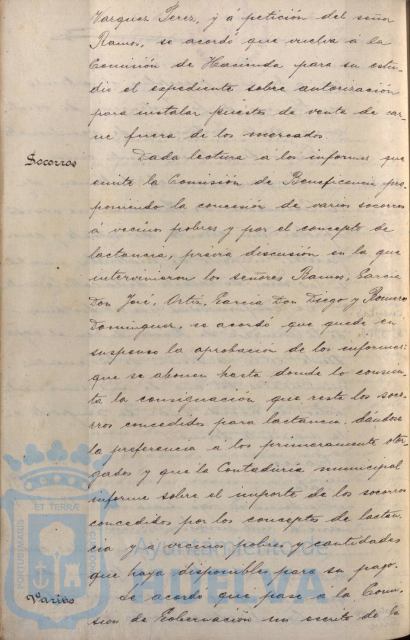 Vazquez Perez, y á petición del señor
Ramos, se acordó que vuelva á la
Comisión de Hacienda para su estu-
dio el expediente sobre autorización
para instalar puestos de venta de car-
ne fuera de los mercados.
Socorros
Dada lectura á los informes que
emite la Comisión de Beneficencia pro-
poniendo la concesión de varios socorros
á vecinos pobres y por el concepto de
lactancia, previa discusión en la que
intervinieron los señores Ramos, Garcia
Don José, Ortiz, Garcia Don Diego y Romero
Dominguez, se acordó que quede en
suspenso la aprobación de los informes:
que se abonen hasta donde lo consien-
ta la consignación que reste los soco-
rros concedidos para lactancia, dándose
la preferencia á los primeramente otor-
gados y que la Contaduria municipal
informe sobre el importe de los socorros
concedidos por los conceptos de lactan-
cia y á vecinos pobres y cantidades
que haya disponibles para su pago.
Varios
Se acordó que pase á la Comi-
sion de Gobernación un escrito de la
PORTUS MARIS
ET TERRÆ
CUSTODIA
Ayuntamiento de
HUELVA